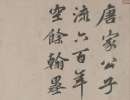 唐家公子
流六百年
空餘翰墨